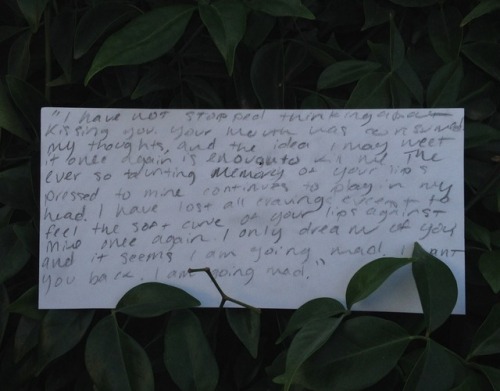 "I have not stopped thinking about
kissing you. Your mouth has consumed
my thoughts, and the idea I may meet
it once again is enough to kill me. The
ever so taunting memory of your lips
pressed to mine continues to play in my
head. I have lost all cravings except to
feel the soft curve of your lips against
mine once again. I only dream of you
and it seems I am going mad. I want
you back. I am going mad."